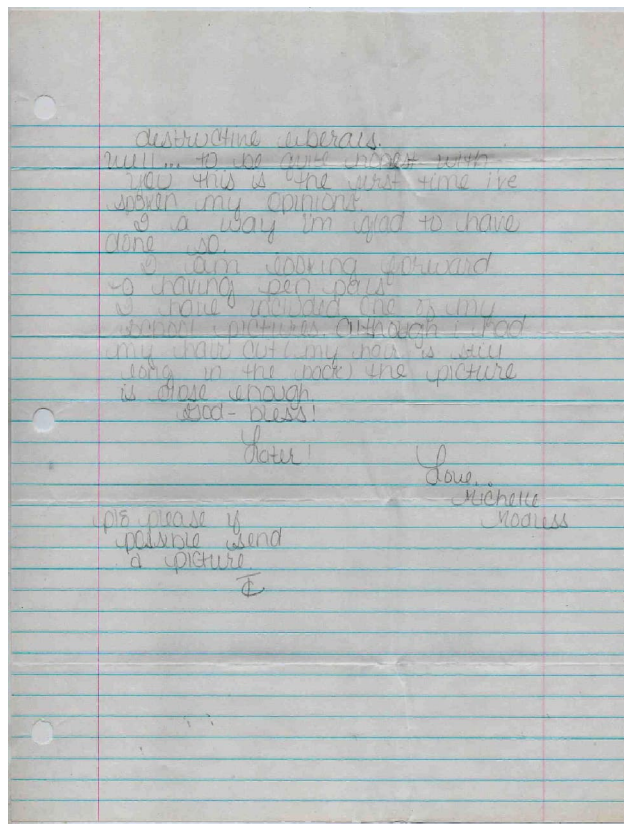 destructine liberals.
well... to be quite honest with
you this is the first time i've
spoken my opinions.
I a way i'm glad to have
done so.
I am looking forward
to having pen pals
I have inclosed one of my
school pictures. Although i had
my hair cut (my hair is still
long in the back) the picture
is close enough.
God-bless!
Later!
Love,
Michelle
p/s please if
possible send
a picture